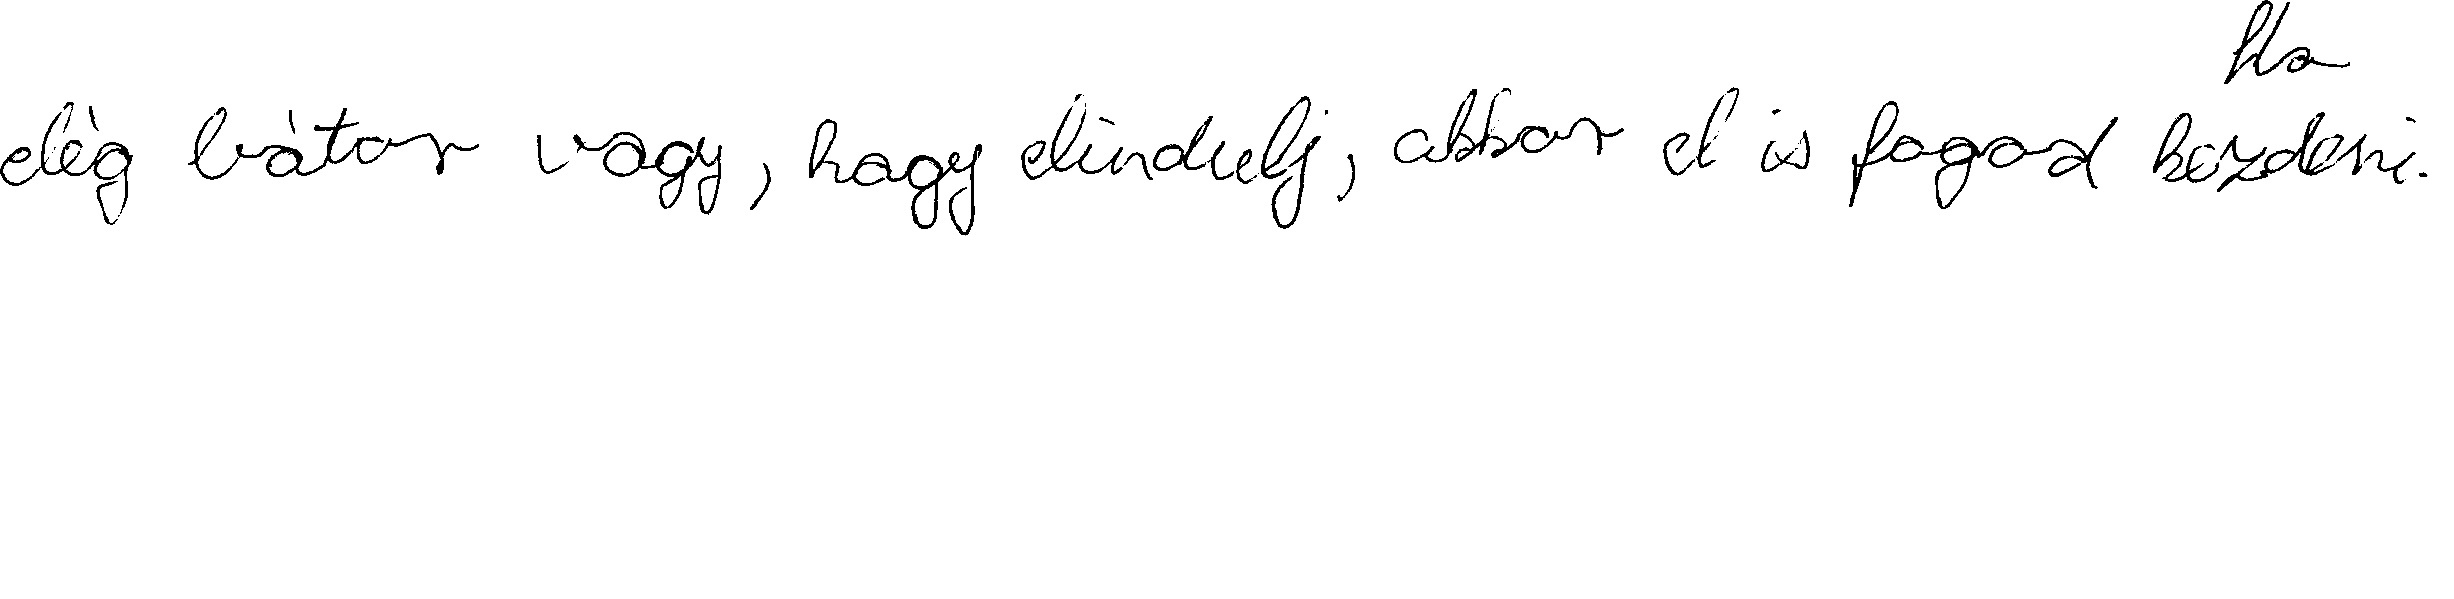 Ha
elég bátor vagy, hogy elindulj, akkor el is fogod kezdeni.